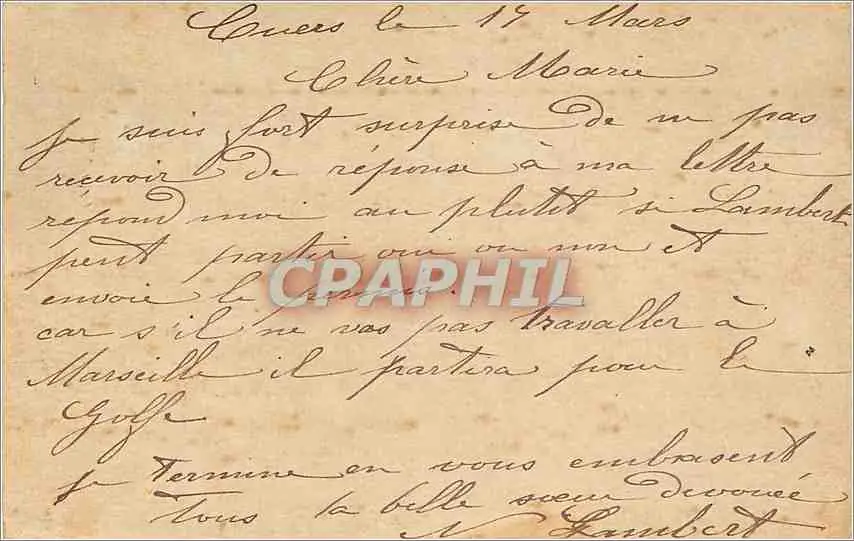 Cuers le 17 Mars
Chère Marie
Je suis fort surprise de ne pas
recevoir de réponse à ma lettre
répond moi au plutôt si Lambert
peut partir oui ou non et
envoie le permis.
CPAPHIL
car s'il ne vas pas travaller à
Marseille il partira pour le
Golfe
Je termine en vous embrasent
tous ta belle sœur devouée
N Lambert